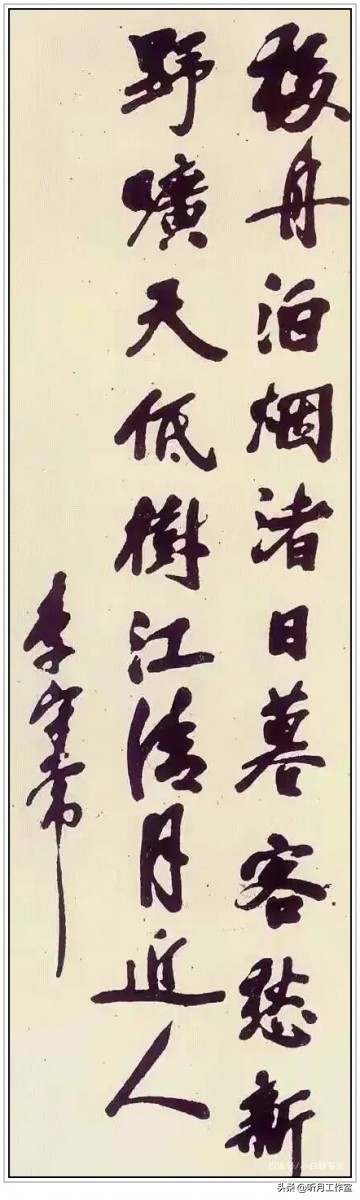 移舟泊烟渚日暮客愁新
野曠天低樹江清月近人
李守常
头条@听月工作室